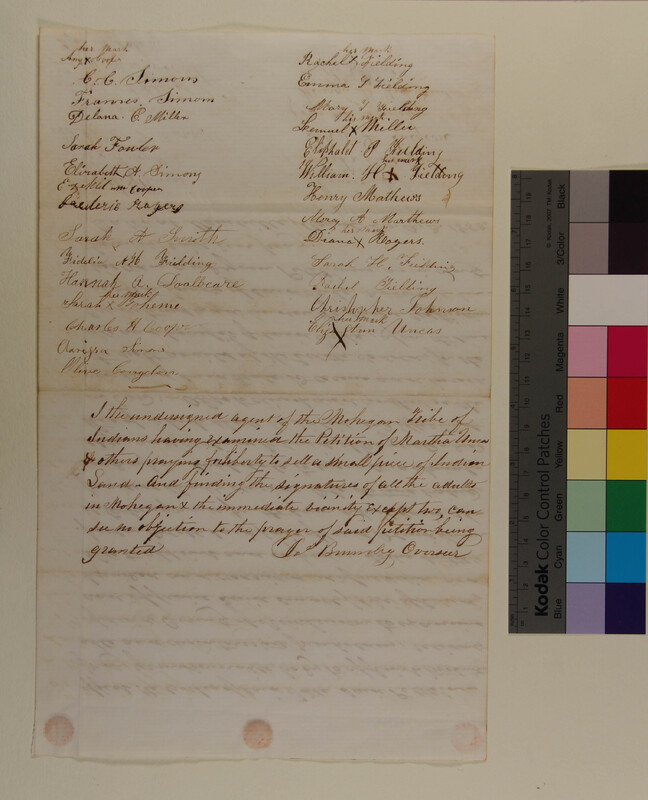 her mark
Amy x Coop
C. C. Simons
Frances Simons
Delana C Miller
Sarah Fowler
Elizabeth A. Simons
Ezekiel Cooper
Frederic Rogers
Sarah A Smith
Fidelia A H Fielding
Hannah A.
her mark
Sarah x
Charles A Coop
Simons
Oliver Congdon
her mark
Rachel x Fielding
Emma F Fielding
Mary T Fielding
his mark
Lemuel x Miller
Eliphalet P Fielding
his mark
William. H x Fielding
Henry Mathews
Mercy A Matthews
her mark
Diana x Rogers.
Sarah H. Fielding
Rachel Fielding
Christopher Johnson
her mark
Eliz x Ann Uncas
I the undersigned agent of the Mohegan Tribe of
Indians having examined the Petition of Martha Uncas
& others praying for liberty to sell a small piece of Indian
Land - and finding the signatures of all the adults
in Mohegan & the immediate vicinity except two, can
see no objection to the prayer of said Petition being
granted
Overseer
Kodak Color Control Patches
© Kodak, 2007 TM: Kodak
Blue
Cyan
Green
Yellow
Red
Magenta
White
3/Color
Black